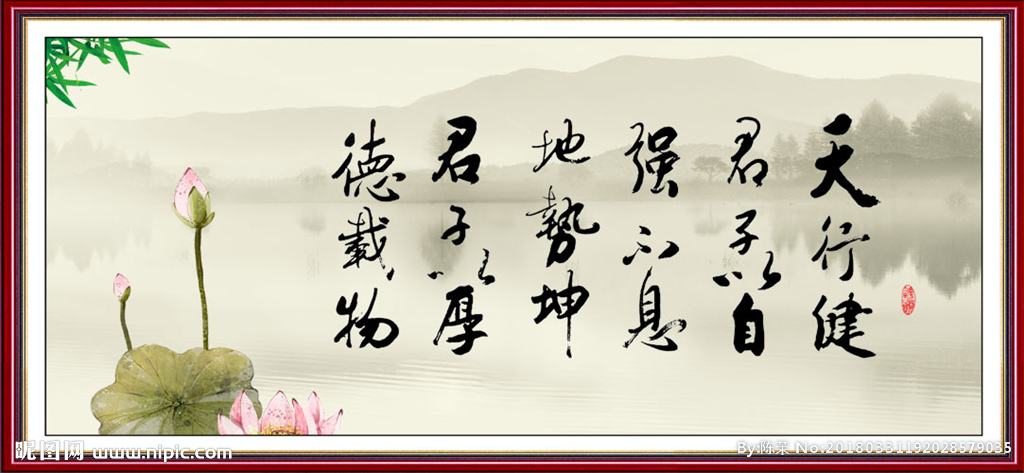 天行健
君子以自
强不息
地势坤
君子以厚
德载物
昵图网 www.nipic.com
By:陈某 No:20180331192028579035